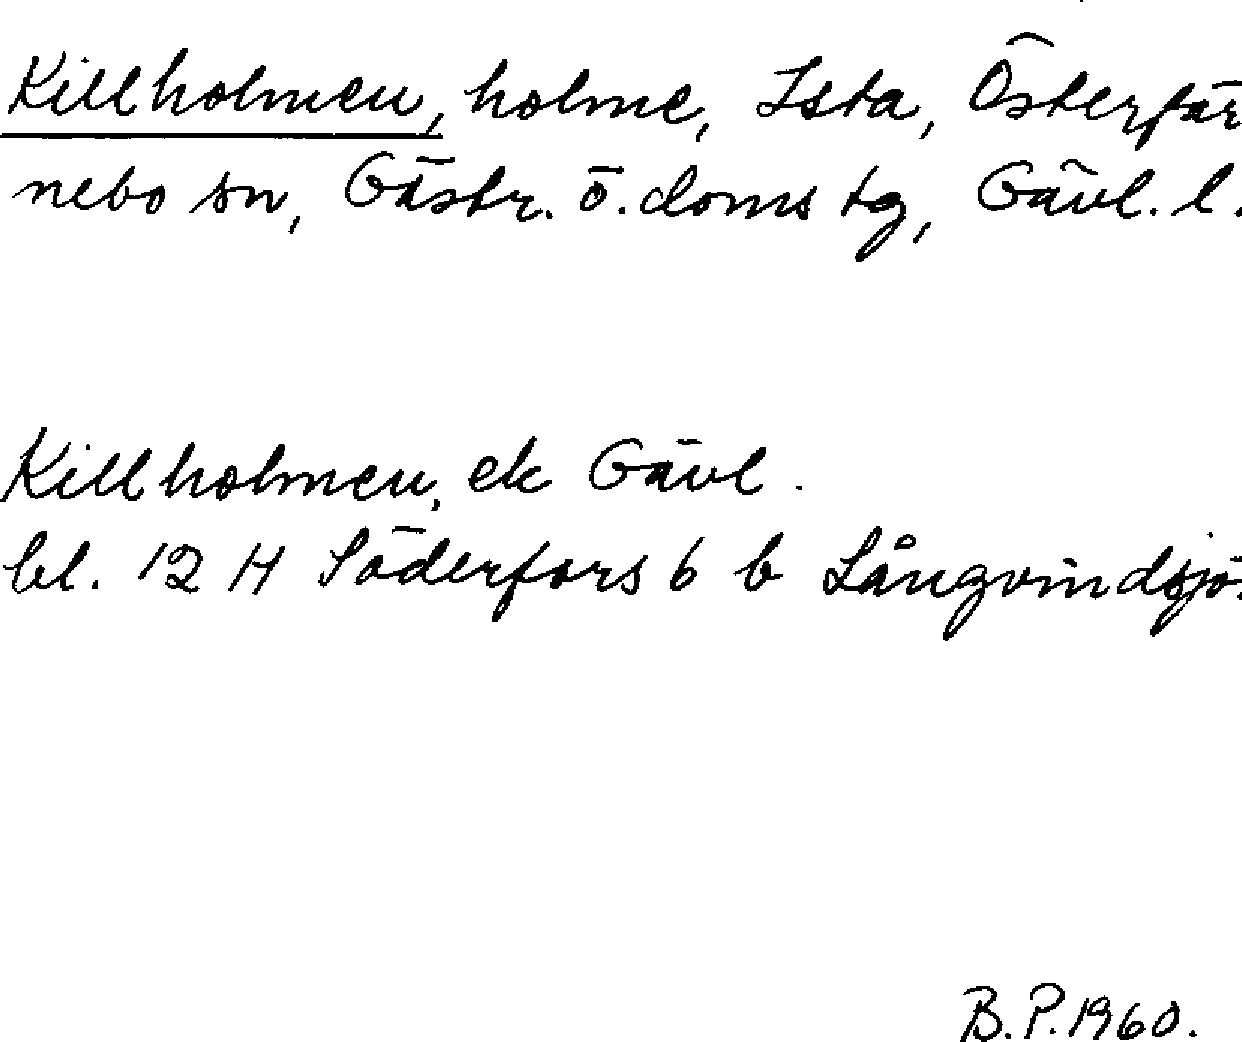 Killholmen, holme, Ista, Österfär
nebo sn, Gästr. ö. doms tg, Gävl. l.
Killholmen, ek Gävl.
bl. 12 H Söderfors 6 b Långvindsjö.
B.P. 1960.